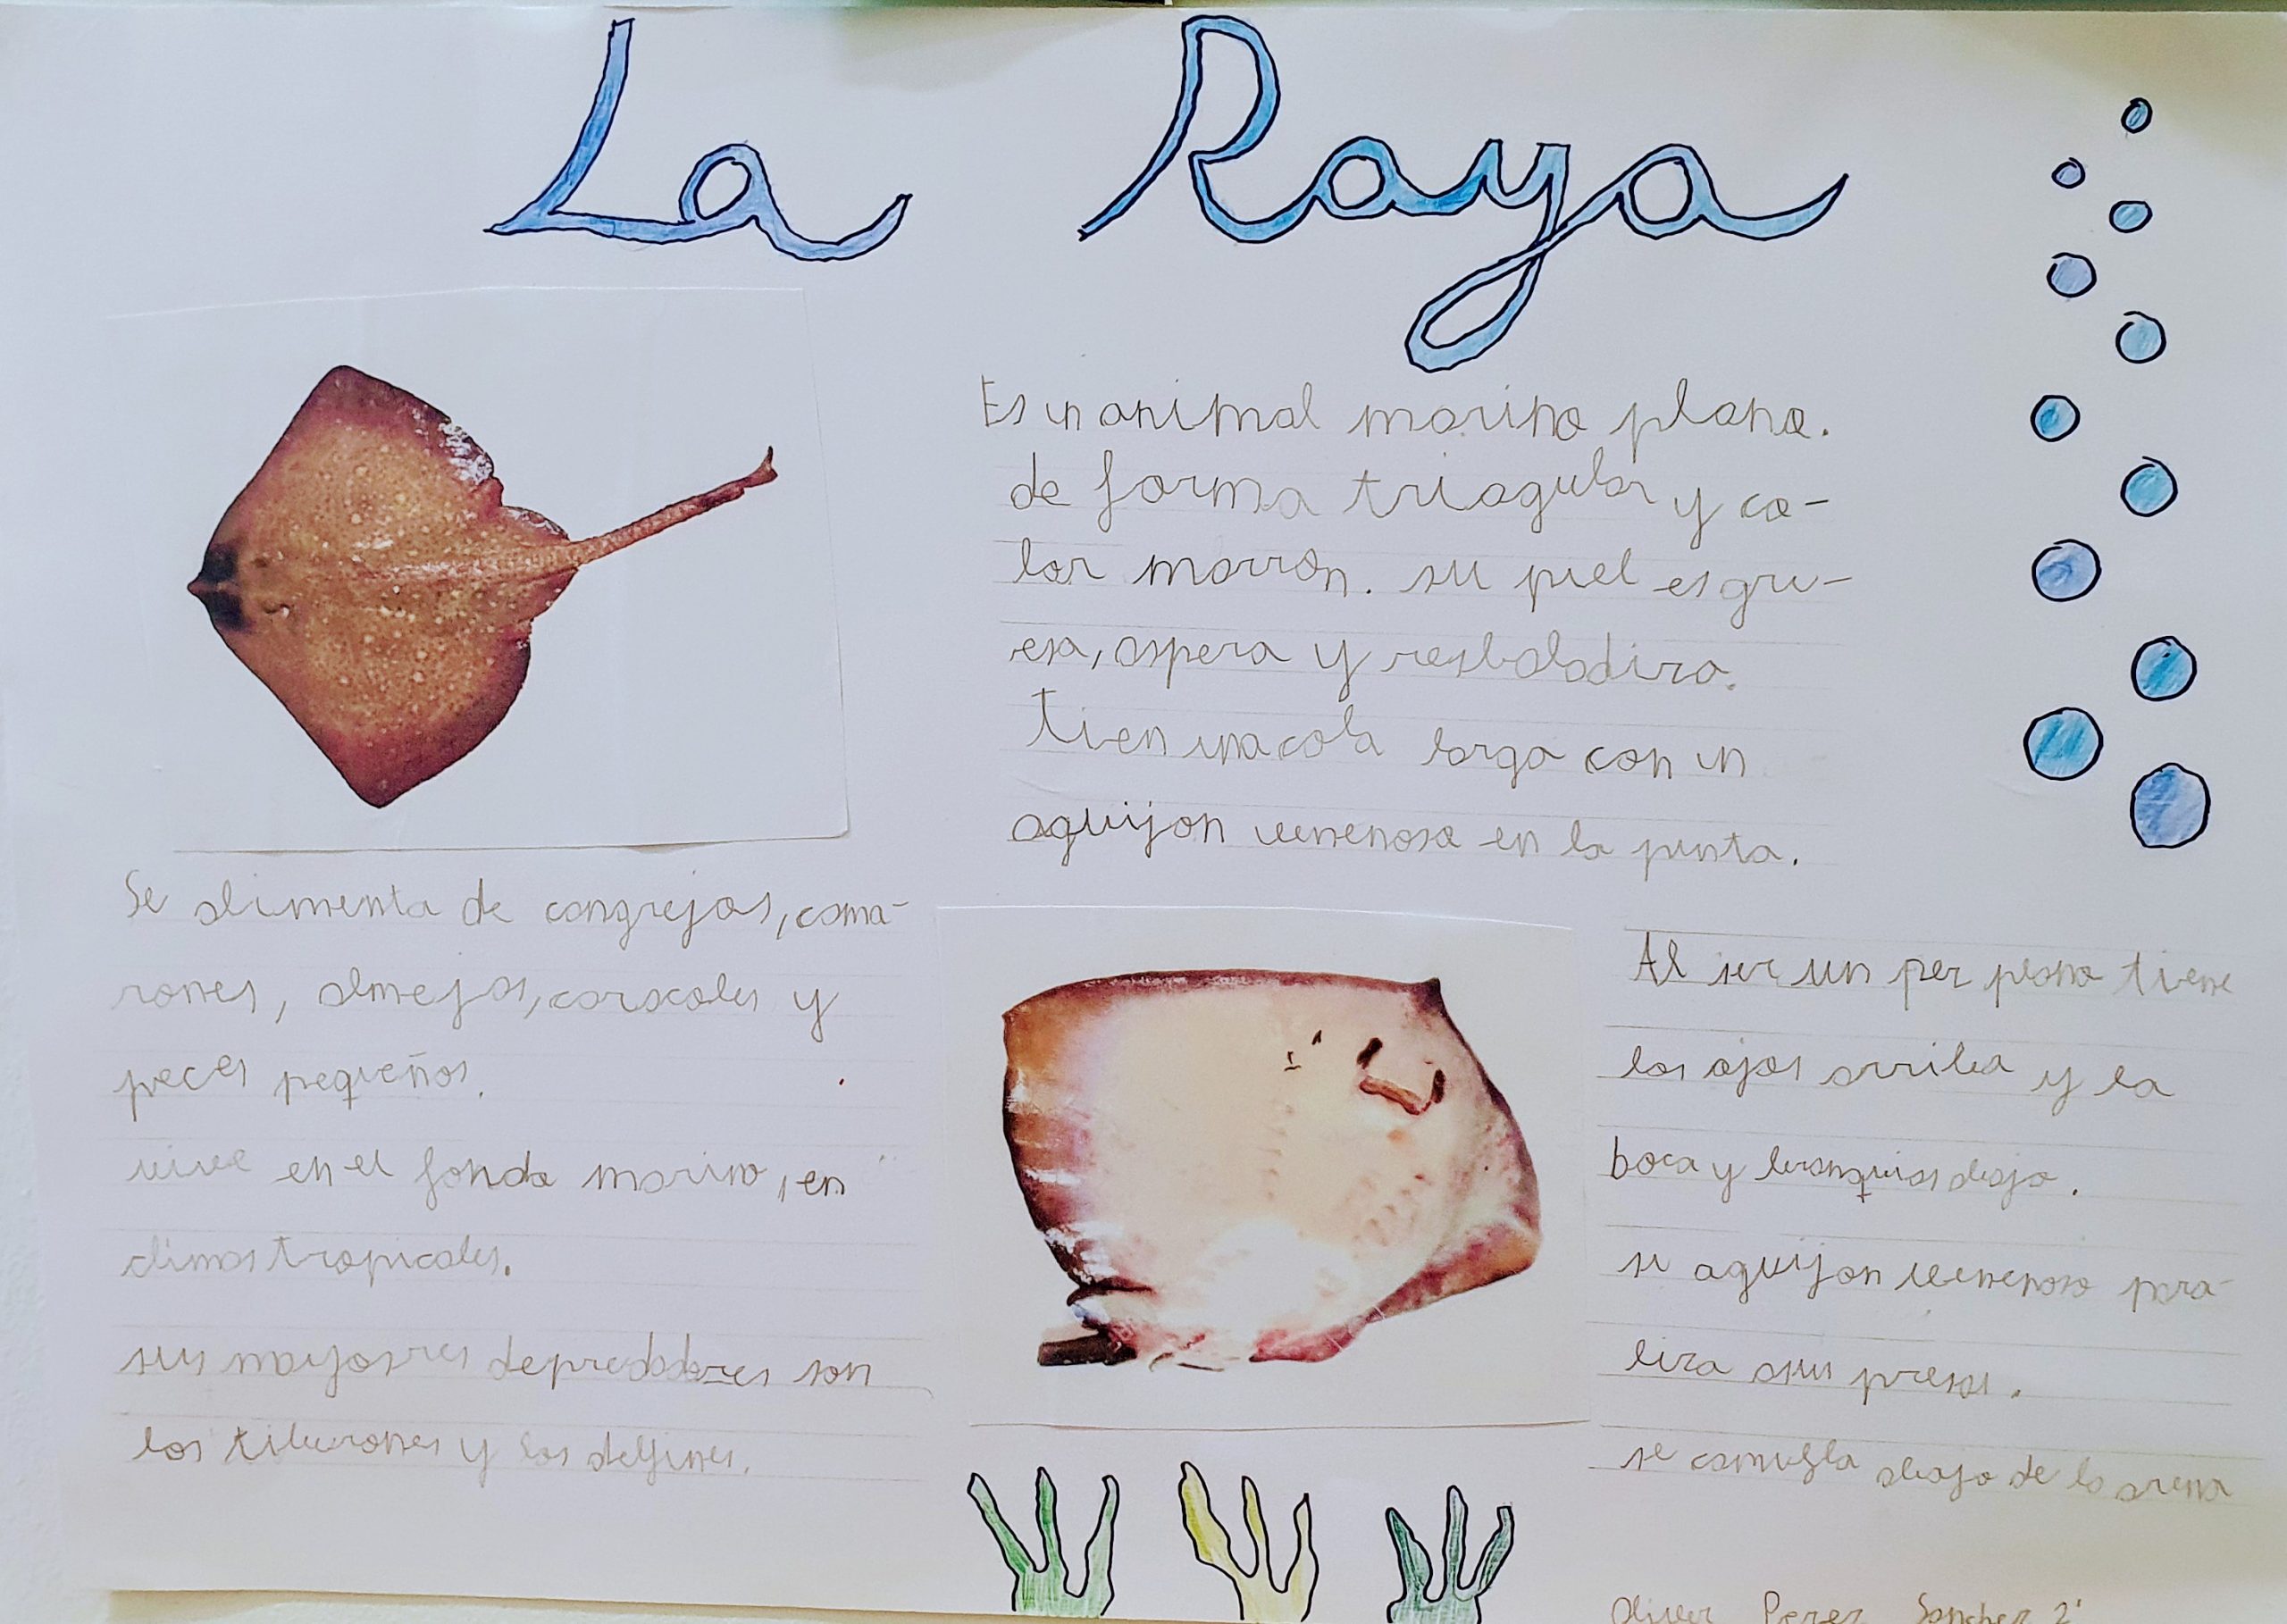 La Raya
Es un animal marino plano.
de forma triagular y co-
lor marrón. su piel es gru-
esa, aspera y resbaladiza.
tien una cola larga con un
aguijon venenoso en la punta.
Se alimenta de cangrejos, cama-
rones, almejas, caracoles y
peces pequeños.
vive en el fondo marino, en
climas tropicales.
sus mayores depredadores son
los tiburones y los delfines.
Al ser un pez plano tiene
los ojos arriba y la
boca y branquias abajo.
su aguijon venenoso para-
liza a sus presas.
se camufla abajo de la arena
Oliver Perez Sanchez 2º